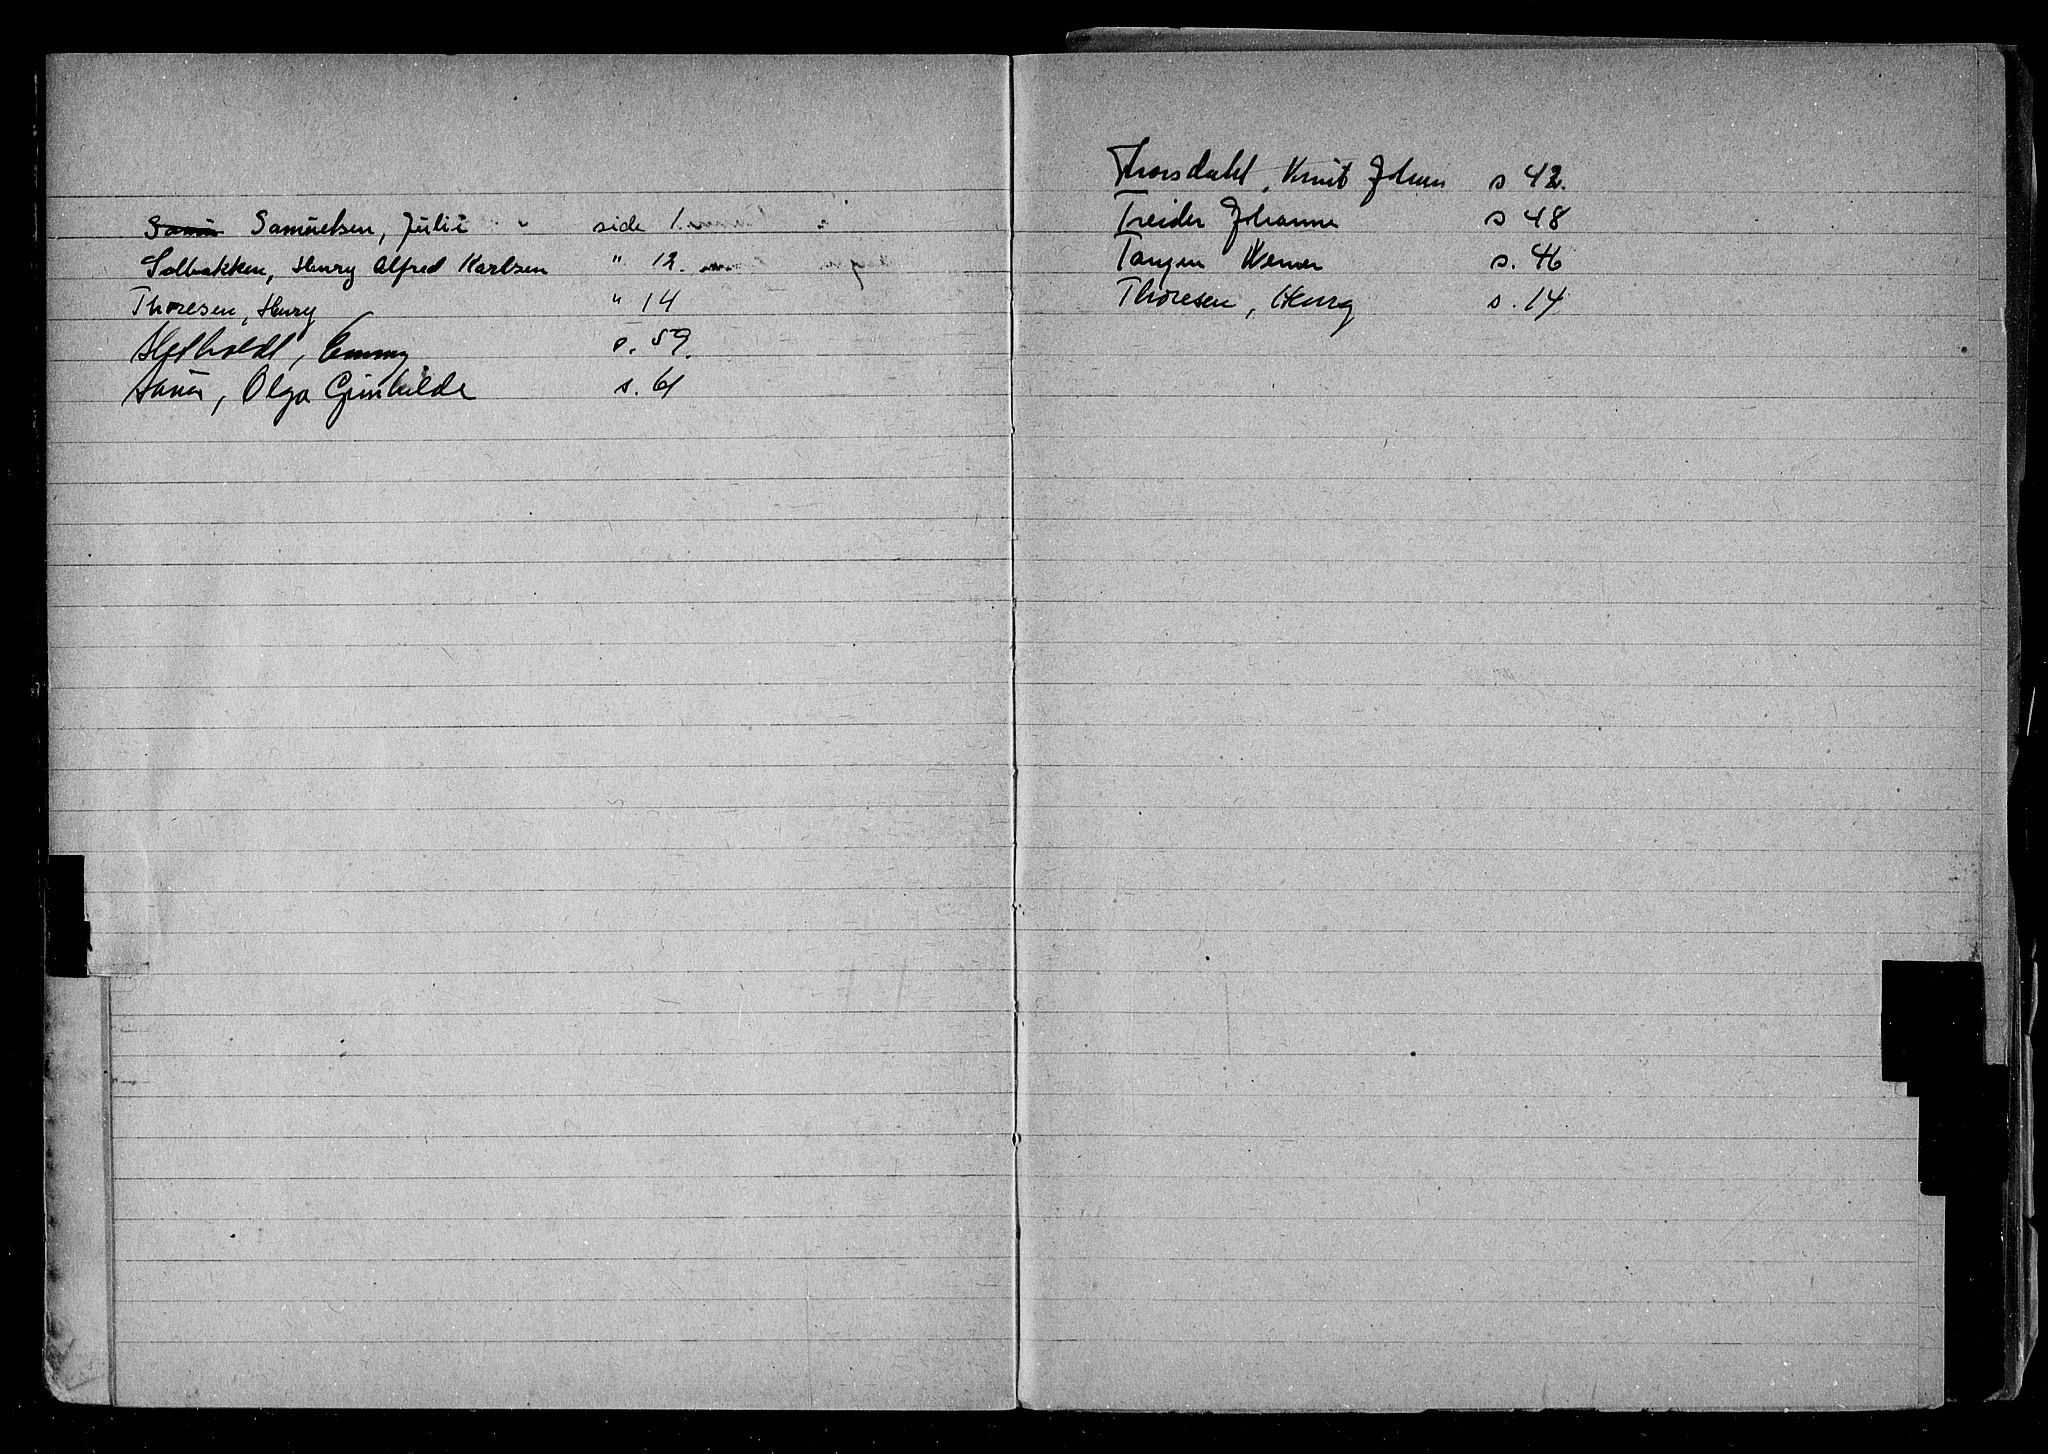 Samuelsen, Julie side 1.
Solbakken, Henry Alfred Karlsen " 12.
Thoresen, Henry " 14
Emmy s. 59.
Olga Gunhilde s. 61
Thorsdahl, Knut Johan s 42.
Treider Johanne s 48
Tangen Werner s. 46
Thoresen, Henry s. 14